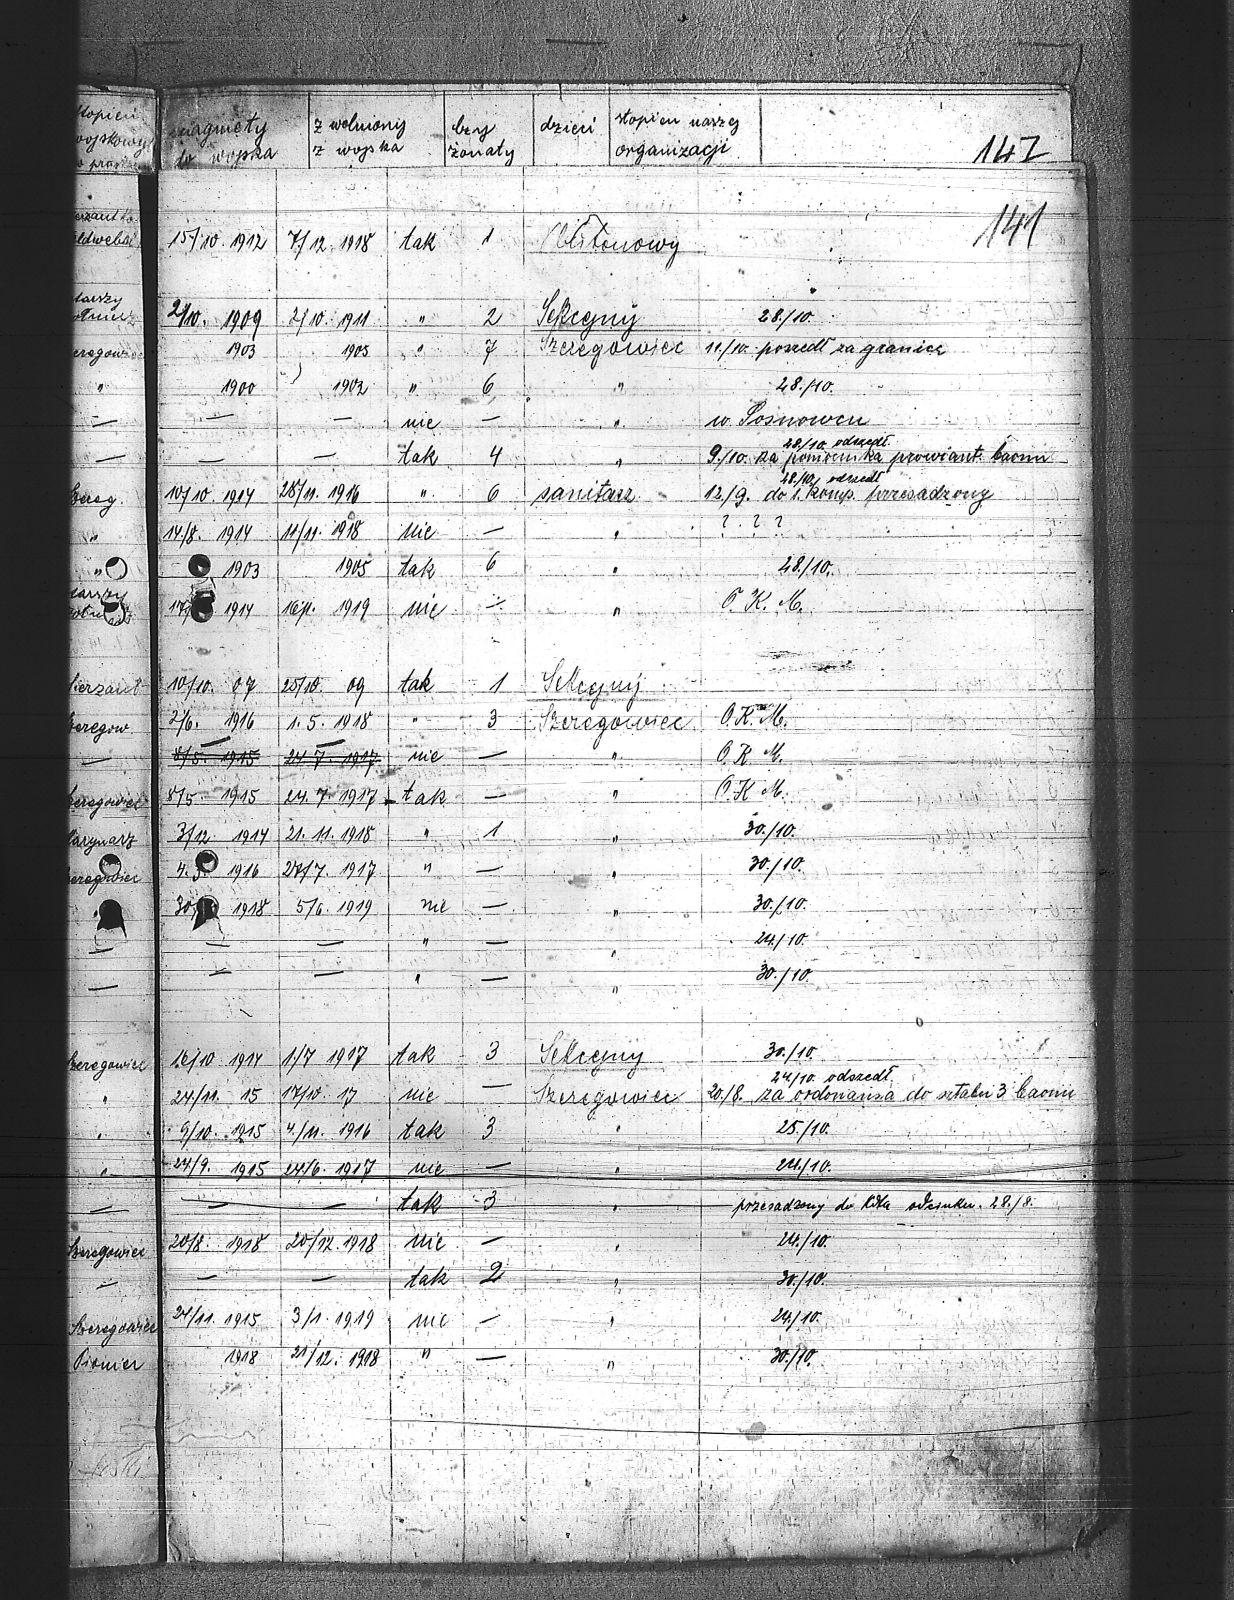 do wojska z wolniony z wojska czy żonaty dzieci stopien naszej organizacji 147
141
15/10. 1912 7/12. 1918 tak 1
2/10. 1909 2/10. 1911 " 2 Sekcyjny 28./10.
1903 1905 " 7 Szeregowiec 11/10. poszedł za granicę
" 1900 1902 " 6 " 28./10.
— — — nie — " w. Sosnowcu
28/10. odszedł
— — — tak 4 " 9/10. za pomocnika prowiant. baonu
28/10. odszedł
Szereg. 10/10 1914 28/11. 1916 " 6 sanitarz 12/9. do 1. komp. przesadzony
" 14/8. 1914 11/11. 1918 nie — " ? . ? ?
" 1903 1905 tak 6 " 28/10.
1914 1919 nie — " O. K. M.
Sierzant 10/10. 07 25/10. 09 tak 1 Sekcyjny
Szeregow. 2/6. 1916 1. 5. 1918 " 3 Szeregowiec O. K. M.
— 8/5. 1915 24. 7. 1917 nie — " O. K. M.
Szeregowiec 8/5. 1915 24. 7. 1917 tak — " O. K. M.
Marynarz 3/12 1914 21. 11. 1918 " 1 " 30./10.
Szeregowiec 1916 /7. 1917 " — " 30./10.
1918 5/6. 1919 nie — " 30./10.
— — — " — " 24/10.
— — — " — " 30./10.
Szeregowiec 16/10 1914 1./7 1917 tak 3 Sekcyjny 30./10.
24/10 odszedł
" 24/11. 15 17/10. 17 nie — Szeregowiec 20./8. za ordonansa do sztabu 3 baonu
" 9/10. 1915 4./11. 1916 tak 3 " 25/10.
" 24/9. 1915 24/6. 1917 nie — " 24./10.
— — — tak 3 " przesadzony do 28./8.
Szeregowiec 20/8. 1918 20/12. 1918 nie — " 24./10.
— — — tak 2 " 30./10.
Szeregowiec 24/11. 1915 3/1. 1919 nie — " 24./10.
Pionier 1918 21/12. 1918 " — " 30./10.